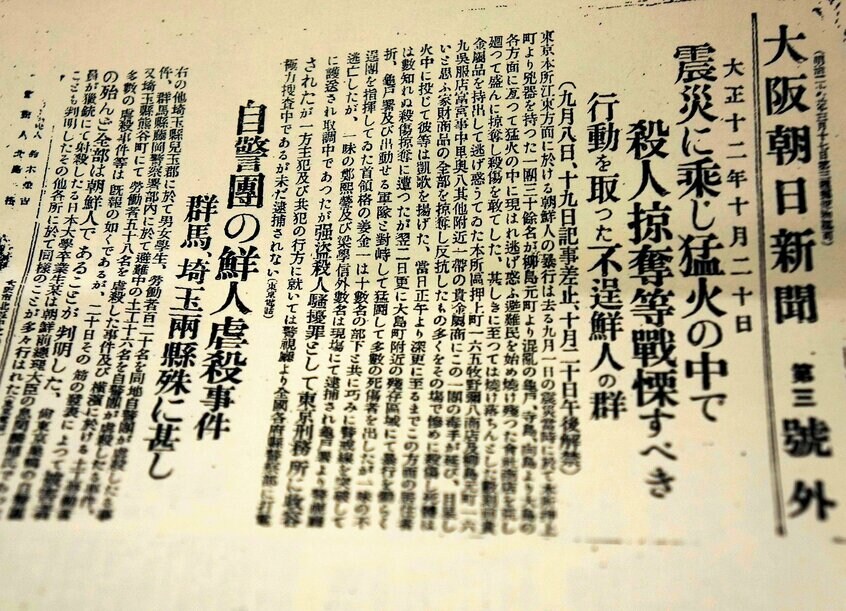 大阪朝日新聞 第三號外
大正十二年十月二十日
震災に乘じ猛火の中で
殺人掠奪等戰慄すべき
行動を取つた不逞鮮人の群
(九月八日、十九日記事差止、十月二十日午後解禁)
東京本所江東方面に於ける朝鮮人の暴行は去る九月一日の震災當時に於て本所押上
町より兇器を持つた一團三十餘名が柳島元町より混亂の龜戸、寺島、向島より大島の
各方面に亙つて猛火の中に現はれ逃げ惑ふ避難民を始め燒け殘つた會社商店を荒し
廻つて盛んに掠奪し殺傷を敢てした、甚しきに至つては燒け落ちんとした
金屬品を持出して逃げ惑うてゐた本所區押上町一六五牧野彌八商店及柳島元町一六
九呉服店
いと思ふ家財商品の全部を掠奪し反抗したもの多くをその場で慘めに殺傷し
火中に投じて彼等は凱歌を揚げた、當日正午より深更に至るまでこの方面の居住者
は數知れぬ殺傷掠奪に遭つたが翌二日更に大島町附近の殘存區域にて暴行を働らく
折、龜戸署及び出動せる軍隊と對峙して猛鬪して多數の死傷者を出したが一味の不
逞團を指揮してゐた首領格の姜金一は十數名の部下と共に巧みに警戒線を突破して
逃亡したが、一味の鄭熙瑩及び梁學信外數名は現場にて逮捕され龜戸署より
に護送され取調中であつたが強盜殺人騷擾罪として東京刑務所に收容
されたが一方主犯及び共犯の行方に就いては警視廳より全國各府縣警察部に打電
極力搜査中であるが未だ逮捕されない(東京電話)
自警團の鮮人虐殺事件
群馬、埼玉兩縣殊に甚し
右の他埼玉縣兒玉郡に於て男女學生、勞働者百二十名を同地自警團が虐殺したる事
件、群馬縣藤岡警察署部内に於て避難中の土工十六名を自警團が虐殺したる事件、
又埼玉縣熊谷町にて勞働者五十八名を虐殺した事件及び橫濱に於ける土工勞働者
多數の虐殺事件等は既報の如くであるが、二十日その筋の發表によつて被害者
の殆んど全部は朝鮮人であることが判明した、尚東京巢鴨の自警團
員が獵銃にて射殺したる日本大學卒業生某は朝鮮前總理大臣の
ことも判明したその他各所に於て同樣のことが多々行はれた